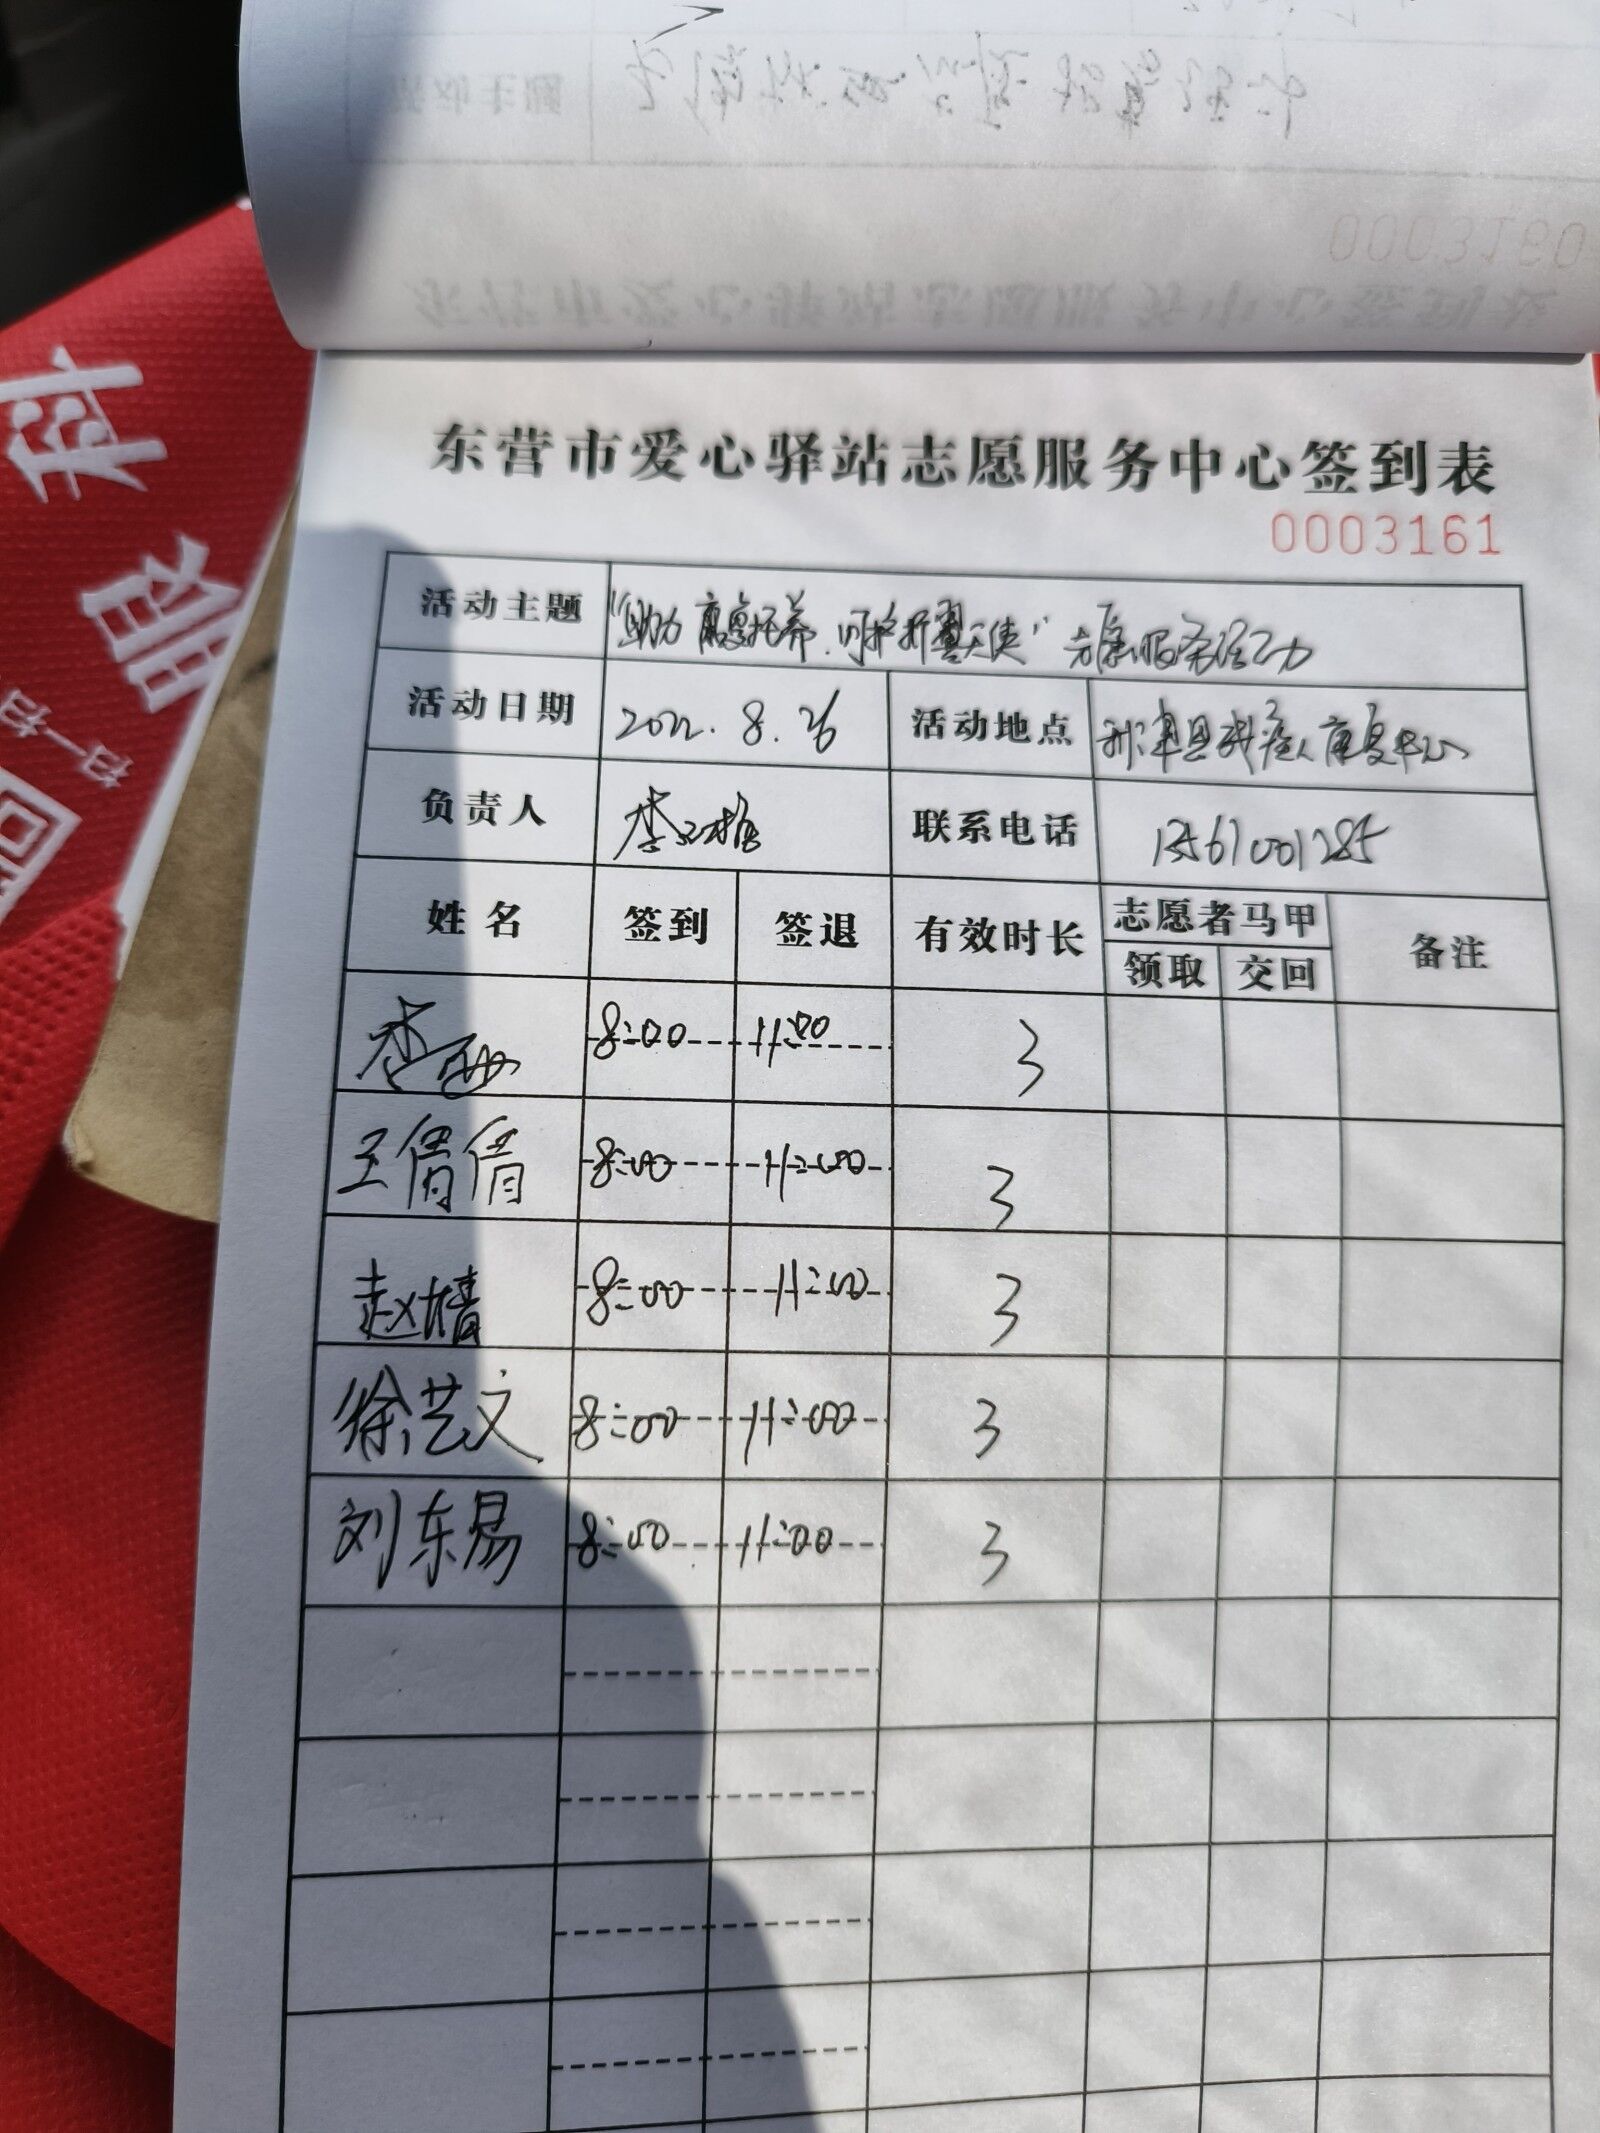 东营市爱心驿站志愿服务中心签到表
0003161
活动主题 "助力康复托养.呵护折翼天使"志愿服务活动
活动日期 2022.8.26 活动地点 利津县残疾人康复中心
负责人 联系电话 13561001285
姓名 签到 签退 有效时长 志愿者马甲 备注
领取 交回
8:00 11:00 3
王倩倩 8:00 11:00 3
赵婧 8:00 11:00 3
徐艺文 8:00 11:00 3
刘东易 8:00 11:00 3